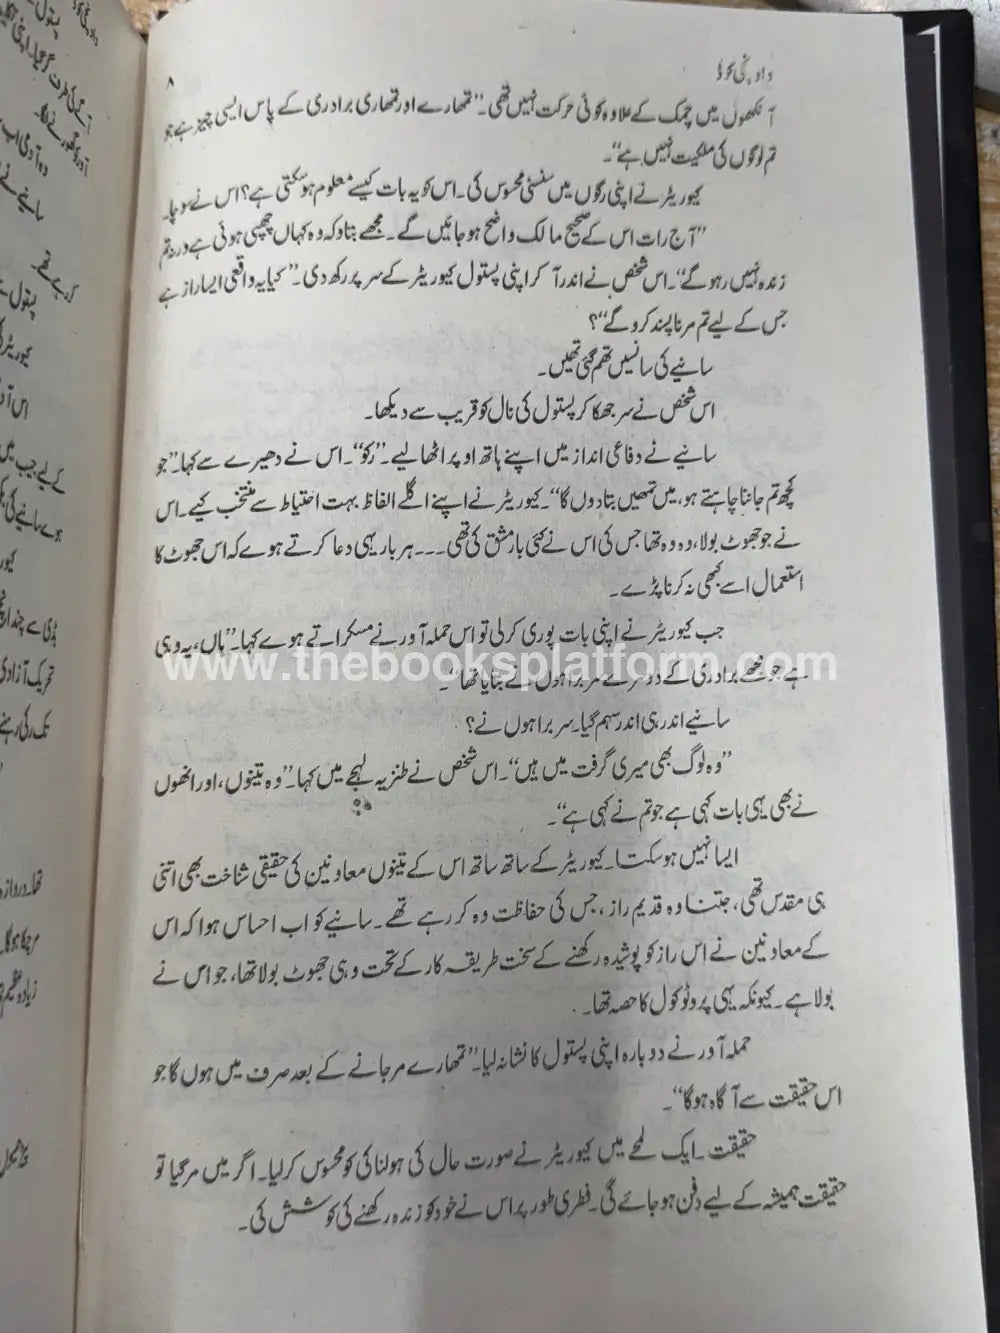 داونچی کوڈ
۸
آنکھوں میں چمک کے علاوہ کوئی حرکت نہیں تھی۔ ”تمھارے اور تمھاری برادری کے پاس ایسی چیز ہے جو
تم لوگوں کی ملکیت نہیں ہے“۔
کیوریٹر نے اپنی رگوں میں سنسنی محسوس کی۔ اس کو یہ بات کیسے معلوم ہو سکتی ہے؟ اس نے سوچا۔
”آج رات اس کے صحیح مالک واضح ہو جائیں گے۔ مجھے بتاو کہ وہ کہاں چھپی ہوئی ہے ورنہ تم
زندہ نہیں رہو گے“۔ اس شخص نے اندر آ کر اپنی پستول کیوریٹر کے سر پر رکھ دی۔ ”کیا یہ واقعی ایسا راز ہے
جس کے لیے تم مرنا پسند کرو گے“؟
سانیے کی سانسیں تھم گئی تھیں۔
اس شخص نے سر جھکا کر پستول کی نال کو قریب سے دیکھا۔
سانیے نے دفاعی انداز میں اپنے ہاتھ اوپر اٹھا لیے۔ ”رکو“۔ اس نے دھیرے سے کہا۔ ”جو
کچھ تم جاننا چاہتے ہو، میں تمھیں بتا دوں گا“۔ کیوریٹر نے اپنے اگلے الفاظ بہت احتیاط سے منتخب کیے۔ اس
نے جو جھوٹ بولا، وہ وہ تھا جس کی اس نے کئی بار مشق کی تھی۔۔۔ ہر بار یہی دعا کرتے ہوے کہ اس جھوٹ کا
استعمال اسے کبھی نہ کرنا پڑے۔
جب کیوریٹر نے اپنی بات پوری کرلی تو اس حملہ آور نے مسکراتے ہوے کہا۔ ”ہاں، یہ وہی
www.thebooksplatform.com
ہے جو مجھے برادری کے دوسرے سربراہوں نے بتایا تھا“۔
سانیے اندر ہی اندر سہم گیا۔ سربراہوں نے؟
”وہ لوگ بھی میری گرفت میں ہیں“۔ اس شخص نے طنزیہ لہجے میں کہا۔ ”وہ تینوں، اور انھوں
نے بھی یہی بات کہی ہے جو تم نے کہی ہے“۔
ایسا نہیں ہو سکتا۔ کیوریٹر کے ساتھ ساتھ اس کے تینوں معاونین کی حقیقی شناخت بھی اتنی
ہی مقدس تھی، جتنا وہ قدیم راز، جس کی حفاظت وہ کر رہے تھے۔ سانیے کو اب احساس ہوا کہ اس
کے معاونین نے اس راز کو پوشیدہ رکھنے کے سخت طریقہ کار کے تحت وہی جھوٹ بولا تھا، جو اس نے
بولا ہے۔ کیونکہ یہی پروٹوکول کا حصہ تھا۔
حملہ آور نے دوبارہ اپنی پستول کا نشانہ لیا۔ ”تمھارے مر جانے کے بعد صرف میں ہوں گا جو
اس حقیقت سے آگاہ ہوگا“۔
حقیقت۔ ایک لمحے میں کیوریٹر نے صورت حال کی ہولناکی کو محسوس کر لیا۔ اگر میں مر گیا تو
حقیقت ہمیشہ کے لیے دفن ہو جائے گی۔ فطری طور پر اس نے خود کو زندہ رکھنے کی کوشش کی۔